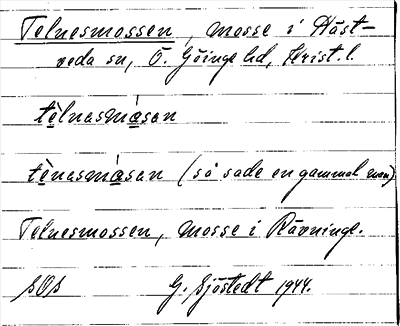 Telnesmossen, mosse i Häst-
veda sn, Ö. Göinge hd, Krist. l.
tèlnasmåsan
tènasmåsan (så sade en gammal man)
Telnesmossen, mosse i Rävninge.
SOS G. Sjöstedt 1944.